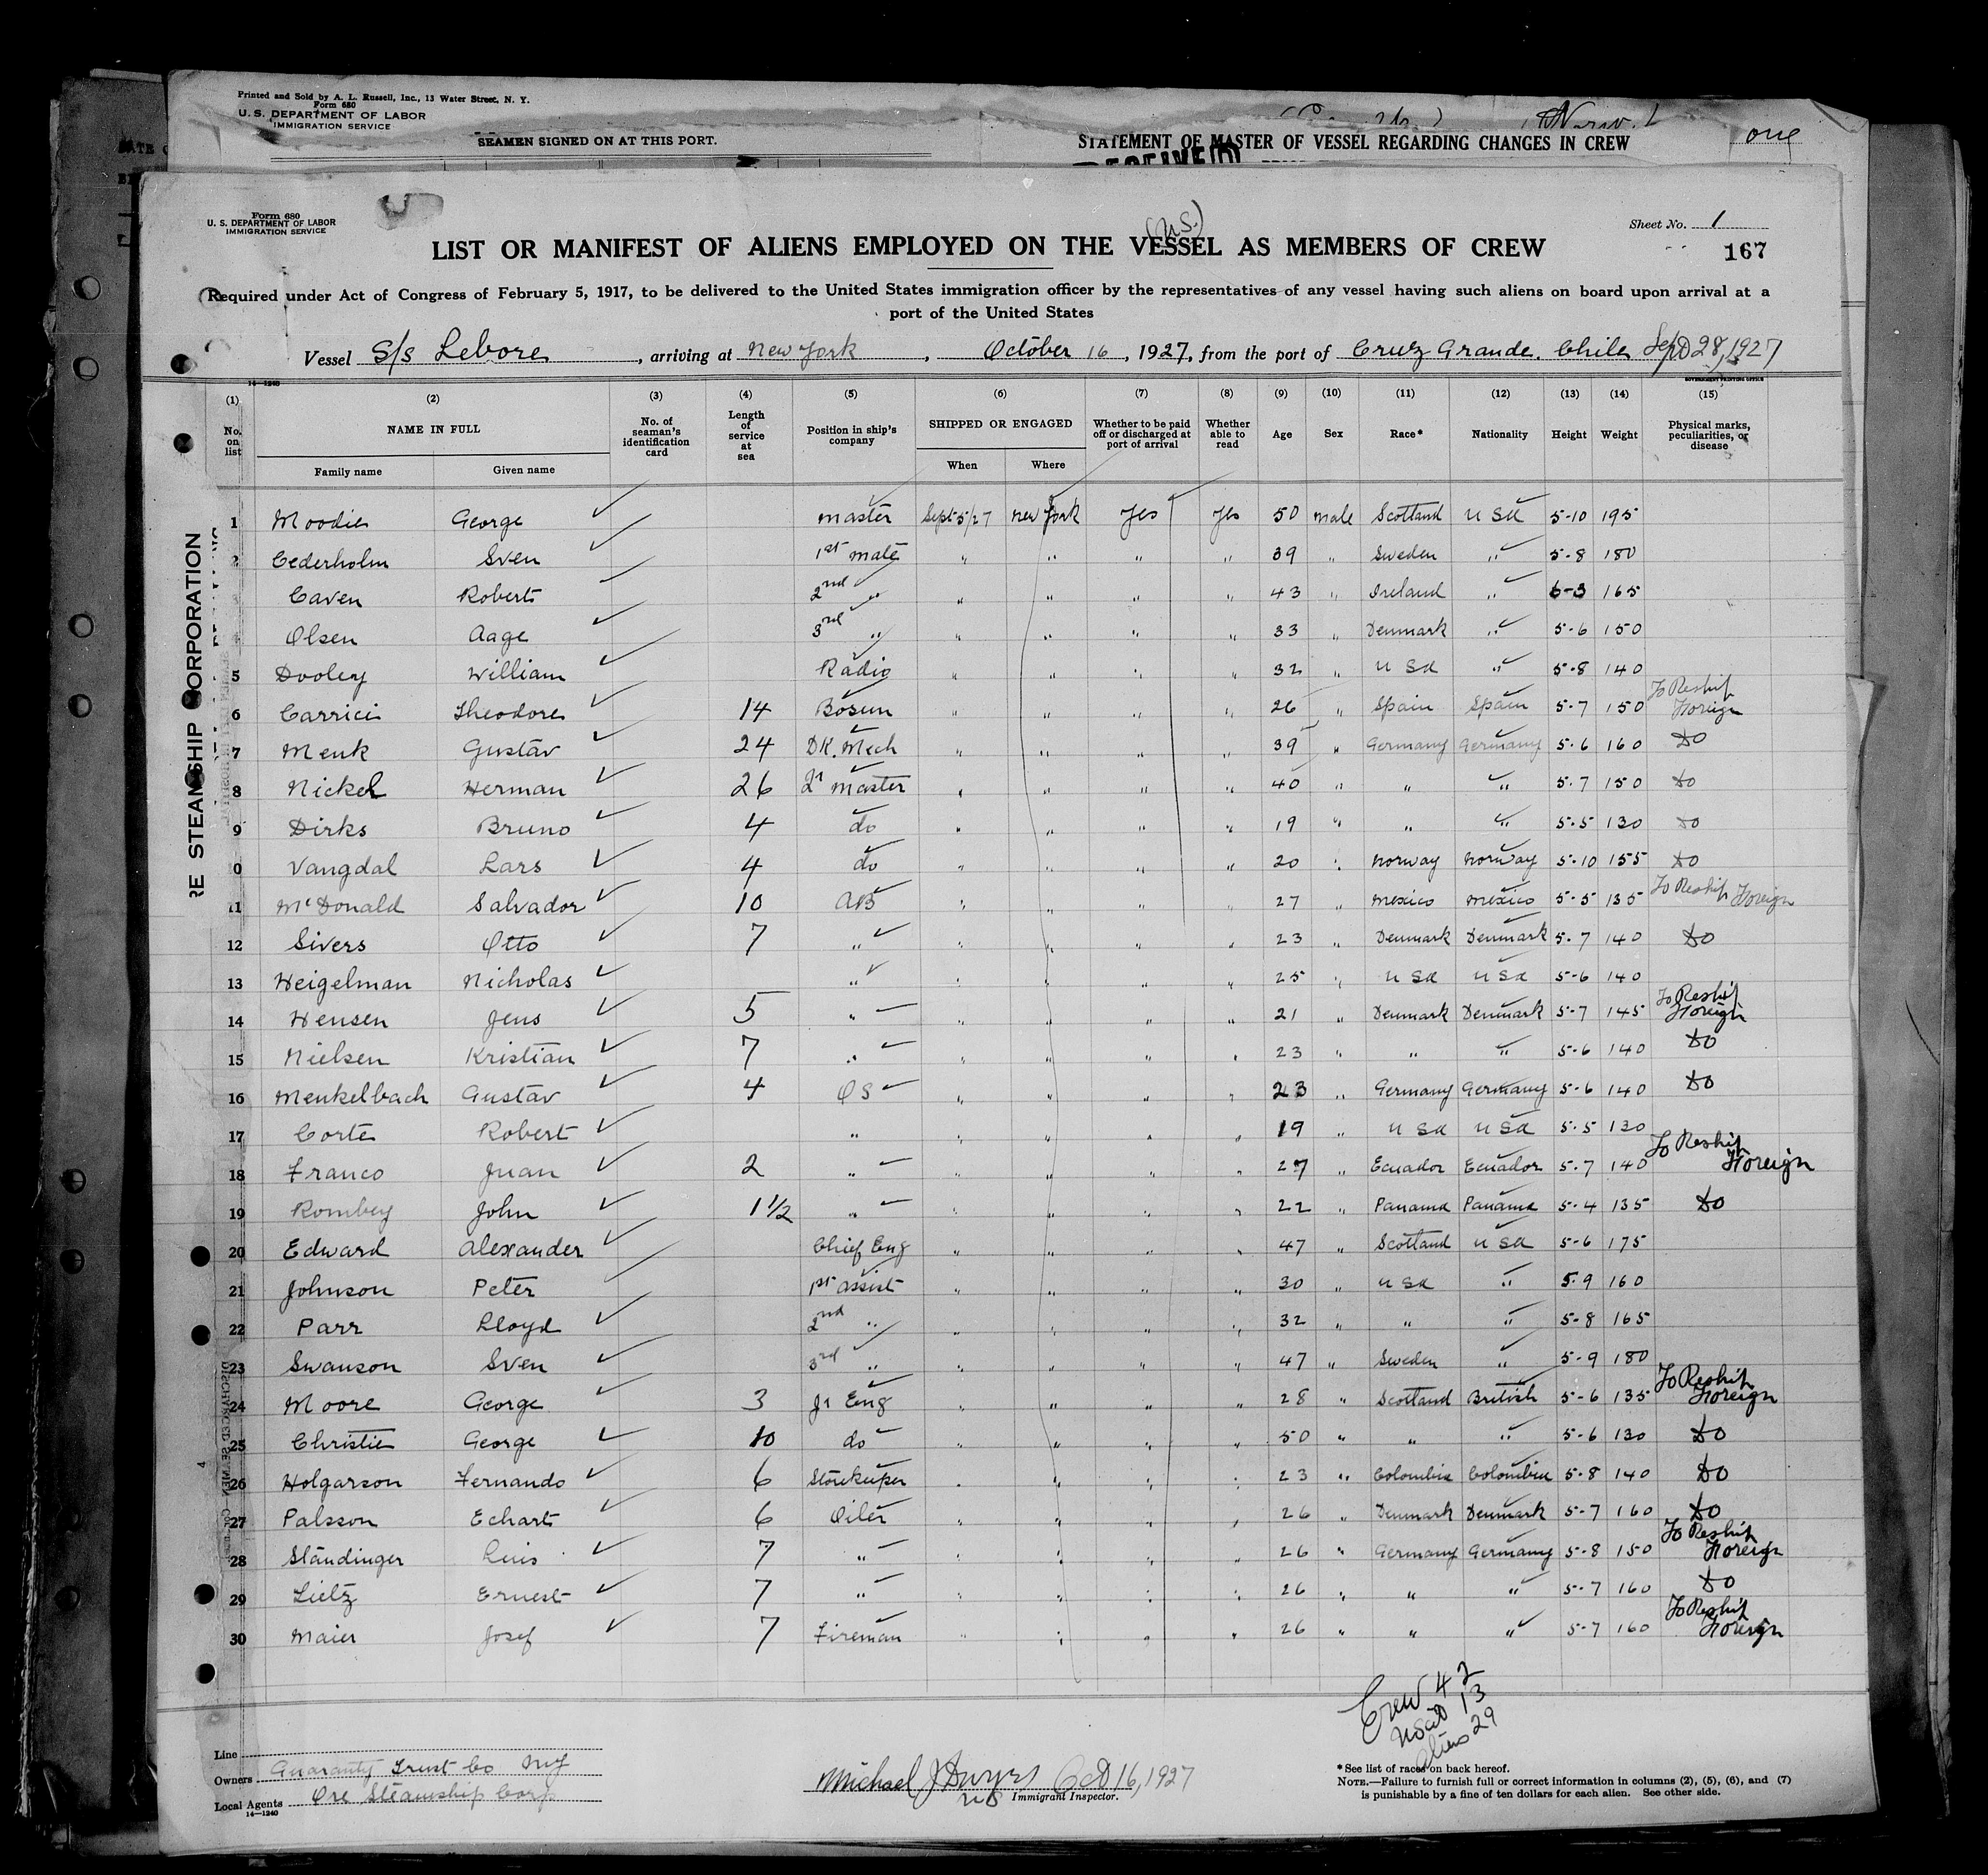 Printed and Sold by A. L. Russell, Inc., 13 Water Street, N. Y.
Form 680
U. S. DEPARTMENT OF LABOR
IMMIGRATION SERVICE
SEAMEN SIGNED ON AT THIS PORT.
STATEMENT OF MASTER OF VESSEL REGARDING CHANGES IN CREW
one
Form 680
U. S. DEPARTMENT OF LABOR
IMMIGRATION SERVICE
(U.S.)
Sheet No. 1
LIST OR MANIFEST OF ALIENS EMPLOYED ON THE VESSEL AS MEMBERS OF CREW
167
Required under Act of Congress of February 5, 1917, to be delivered to the United States immigration officer by the representatives of any vessel having such aliens on board upon arrival at a
port of the United States
Vessel S/S Lebore, arriving at New York, October 16, 1927, from the port of Cruz Grande. Chile Sept 28, 1927
14-1240 GOVERNMENT PRINTING OFFICE
(1) (2) (3) (4) (5) (6) (7) (8) (9) (10) (11) (12) (13) (14) (15)
No. on list NAME IN FULL No. of seaman's identification card Length of service at sea Position in ship's company SHIPPED OR ENGAGED Whether to be paid off or discharged at port of arrival Whether able to read Age Sex Race* Nationality Height Weight Physical marks, peculiarities, or disease
Family name Given name When Where
1 Moodie George ✓ master Sept 5/27 New York Yes Yes 50 male Scotland U Sa 5-10 195
2 Cederholm Sven ✓ 1st mate " " " " 39 " Sweden " 5-8 180
Caven Robert ✓ 2nd " " " " " 43 " Ireland " 165
Olsen Aage ✓ 3rd " " " " " 33 " Denmark " 5-6 150
5 Dooley William ✓ Radio " " " " 32 " U Sa " 5-8 140
6 Carrici Theodore ✓ 14 Bosun " " " " 26 " Spain Spain 5-7 150 To Reship Foreign
7 Menk Gustav ✓ 24 DK. Mech " " " " 39 " Germany Germany 5-6 160 Do
8 Nickel Herman ✓ 26 master " " " " 40 " " " 5-7 150 Do
9 Dirks Bruno ✓ 4 do " " " " 19 " " " 5-5 130 Do
0 Vangdal Lars ✓ 4 do " " " " 20 " Norway Norway 5-10 155 Do
11 McDonald Salvador ✓ 10 AB " " " " 27 " Mexico Mexico 5-5 135 To Reship Foreign
12 Sivers Otto ✓ 7 " " " " " 23 " Denmark Denmark 5-7 140 Do
13 Heigelman Nicholas ✓ " " " " " 25 " U Sa U Sa 5-6 140
14 Hensen Jens ✓ 5 " " " " " 21 " Denmark Denmark 5-7 145 To Reship Foreign
15 Nielsen Kristian ✓ 7 " " " " " 23 " " " 5-6 140 Do
16 Menkelbach Gustav ✓ 4 OS " " " " 23 " Germany Germany 5-6 140 Do
17 Corte Robert ✓ " " " " " 19 " U Sa U Sa 5-5 130
18 Franco Juan ✓ 2 " " " " " 27 " Ecuador Ecuador 5-7 140 To Reship Foreign
19 Rombey John ✓ 1 1/2 " " " " " 22 " Panama Panama 5-4 135 Do
20 Edward Alexander ✓ Chief Eng " " " " 47 " Scotland U Sa 5-6 175
21 Johnson Peter ✓ 1st assist " " " " 30 " U Sa " 5-9 160
22 Parr Lloyd ✓ 2nd " " " " " 32 " " " 5-8 165
23 Swanson Sven ✓ 3rd " " " " " 47 " Sweden " 5-9 180
24 Moore George ✓ 3 Jr Eng " " " " 28 " Scotland British 5-6 135 To Reship Foreign
25 Christie George ✓ 10 do " " " " 50 " " " 5-6 130 Do
26 Holgarson Fernando ✓ 6 Storekeeper " " " " 23 " Colombia Colombia 5-8 140 Do
27 Palsson Echart ✓ 6 Oiler " " " " 26 " Denmark Denmark 5-7 160 Do
28 Standinger Luis ✓ 7 " " " " " 26 " Germany Germany 5-8 150 To Reship Foreign
29 Lietz Ernest ✓ 7 " " " " " 26 " " " 5-7 160 Do
30 Maier Josef ✓ 7 Fireman " " " " 26 " " " 5-7 160 To Reship Foreign
RE STEAMSHIP CORPORATION
Crew 42
USC 13
Aliens 29
Line
Owners Guaranty Trust Co NY
Local Agents Ore Steamship Corp
14-1240
Michael J Dwyer Oct 16, 1927
Immigrant Inspector.
*See list of races on back hereof.
NOTE.—Failure to furnish full or correct information in columns (2), (5), (6), and (7)
is punishable by a fine of ten dollars for each alien. See other side.